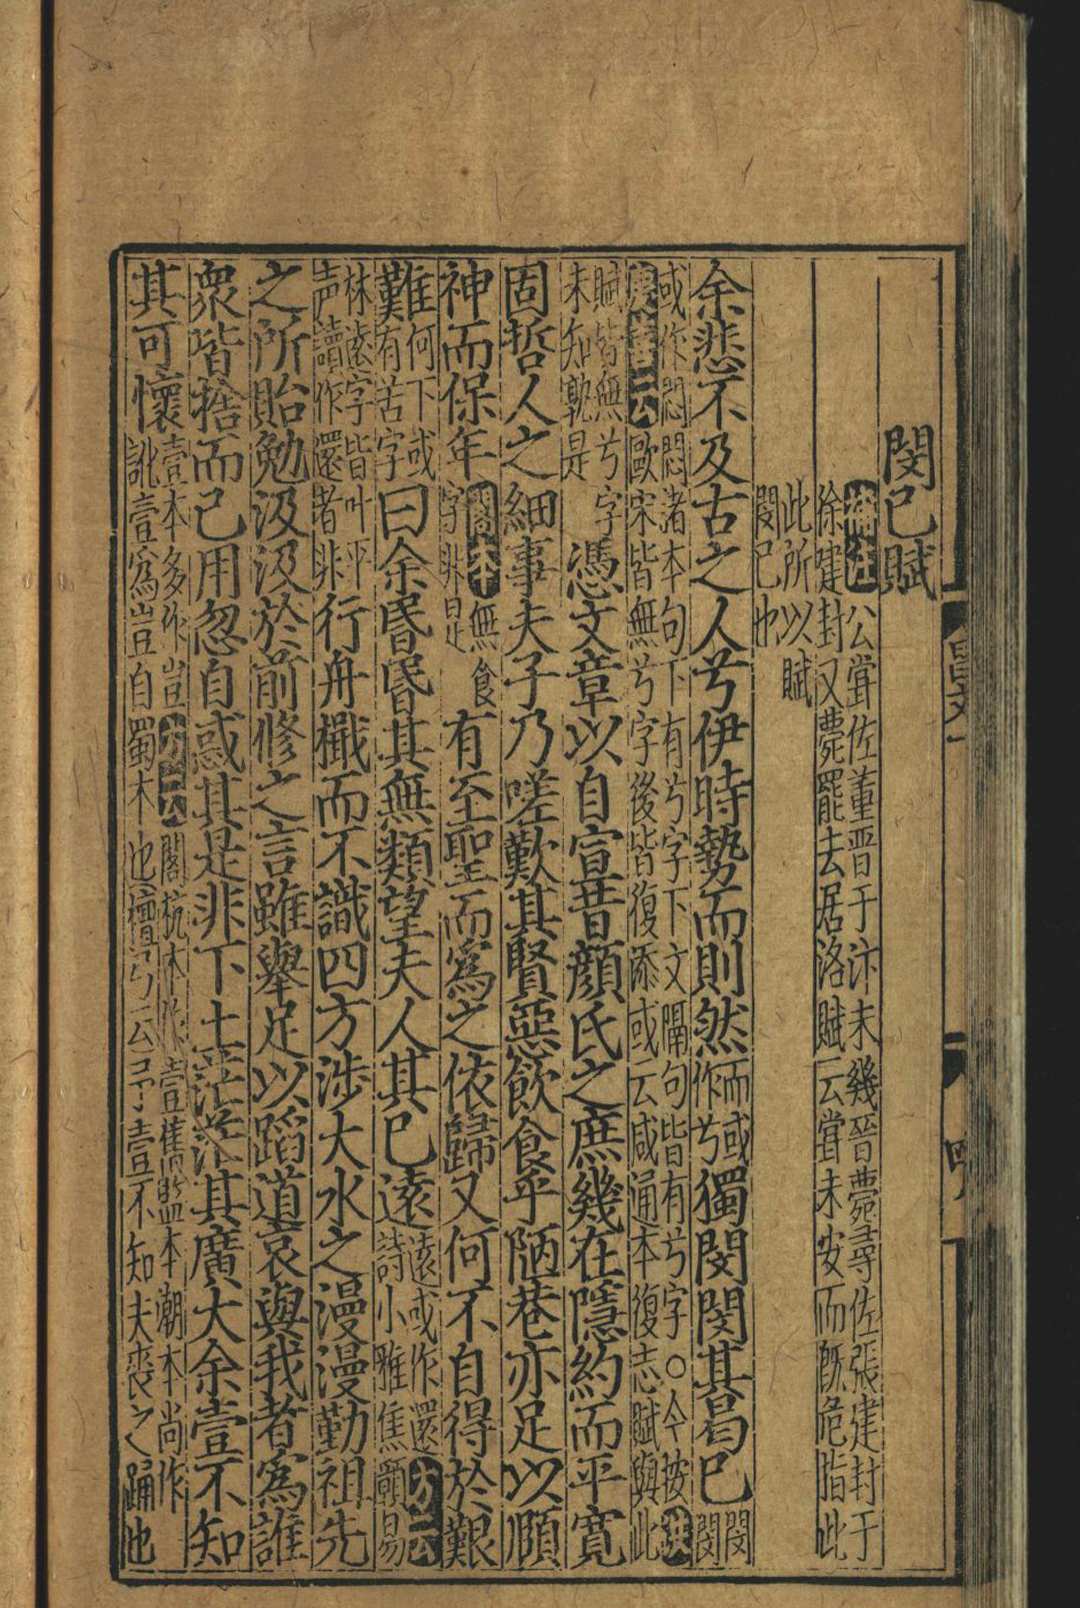 閔己賦
補註公嘗佐董晉于汴未幾晉薨尋佐張建封于
徐建封又薨罷去居洛賦云嘗未安而旣危指此
此所以賦
閔己也
余悲不及古之人兮伊時勢而則然而或作兮獨閔閔其曷已閔閔
或作悶悶諸本句下有兮字下文隔句皆有兮字○今按
歐宋皆無兮字後皆復添或云咸通本復志賦與此
賦皆無兮字
未知孰是憑文章以自宣昔顔氏之庶幾在隱約而平寬
固哲人之細事夫子乃嗟歎其賢惡飲食乎陋巷亦足以頤
神而保年閣本無食字非是有至聖而爲之依歸又何不自得於艱
難何下或有苦字曰余昬昬其無類望夫人其已遠遠或作還方云詩小雅焦顧易
林遠字皆叶平声讀作還者非行舟檝而不識四方涉大水之漫漫勤祖先
之所貽勉汲汲於前修之言雖舉足以蹈道哀與我者爲誰
衆皆捨而己用忽自惑其是非下土茫茫其廣大余壹不知
其可懷壹本多作豈方云閣杭本作壹舊監本潮本尚作
訛壹爲豈自蜀本也檀弓云予壹不知夫喪之踊也